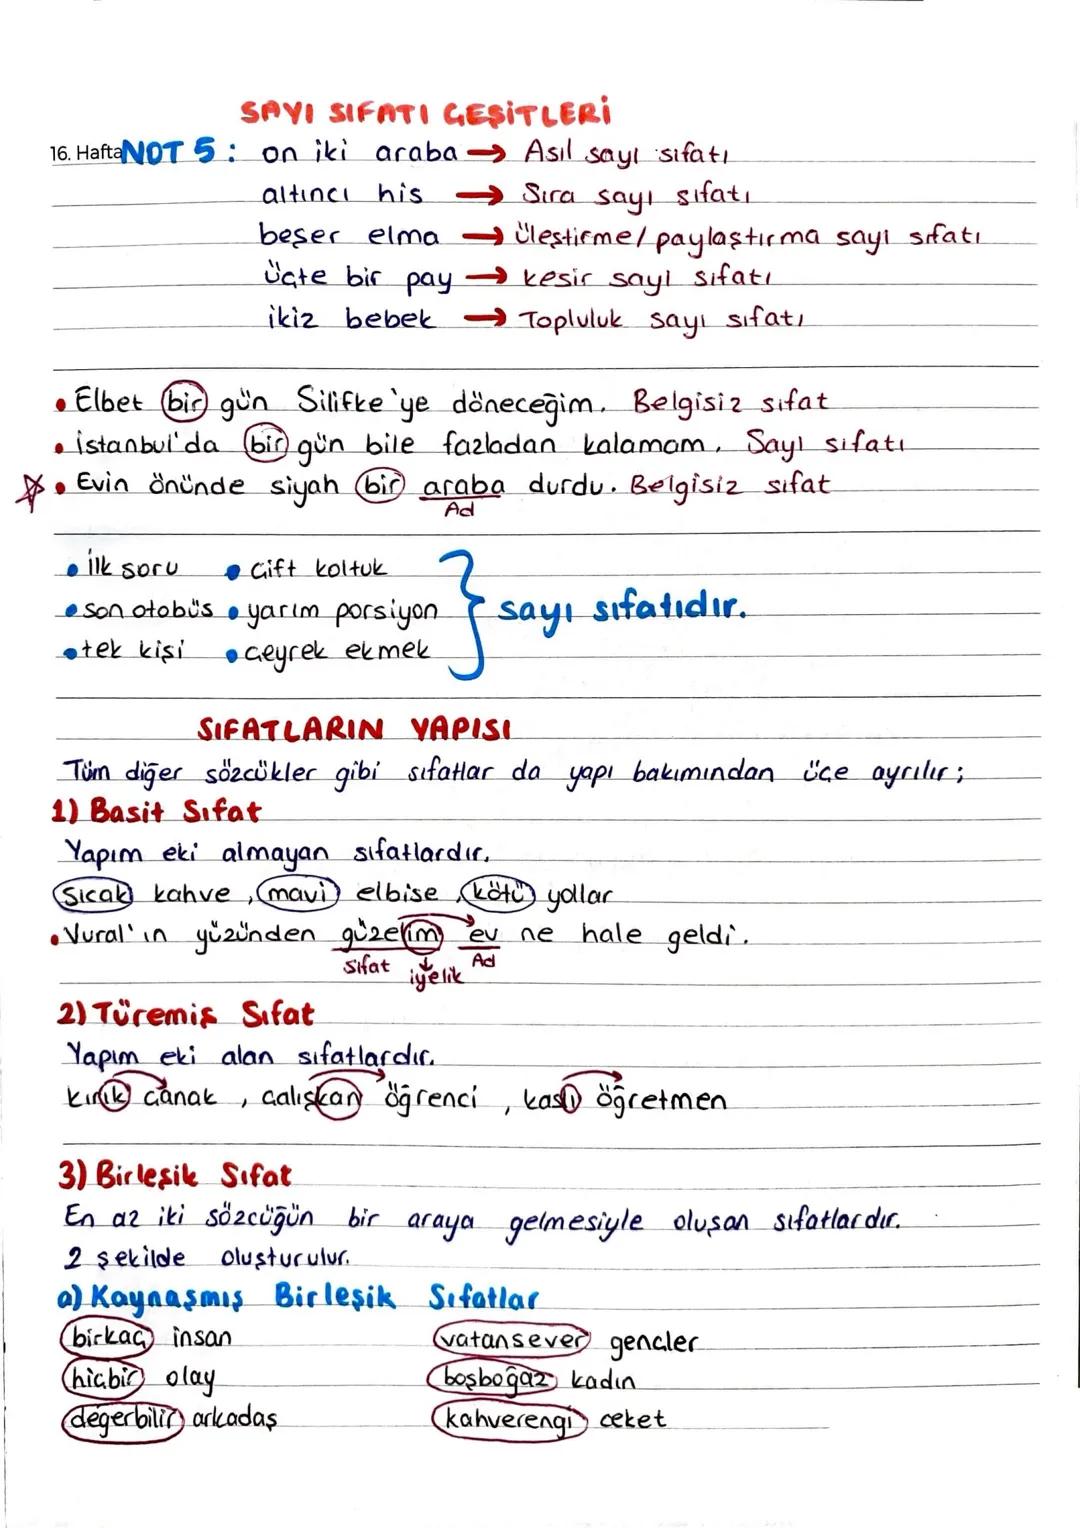 SAYI SIFATI ÇEŞİTLERİ
16. Hafta NOT 5 : on iki araba → Asıl sayı sıfatı
altıncı his → Sıra sayı sıfatı
beşer elma → Üleştirme/ paylaştırma sayı sıfatı
üçte bir pay → kesir sayı sıfatı
ikiz bebek → Topluluk sayı sıfatı
• Elbet bir gün Silifke'ye döneceğim. Belgisiz sıfat
• İstanbul'da bir gün bile fazladan kalamam. Sayı sıfatı
☆ • Evin önünde siyah bir araba durdu. Belgisiz sıfat
Ad
• İlk soru • çift koltuk
• son otobüs • yarım porsiyon } sayı sıfatıdır.
• tek kişi • çeyrek ekmek
SIFATLARIN YAPISI
Tüm diğer sözcükler gibi sıfatlar da yapı bakımından üçe ayrılır ;
1) Basit Sıfat
Yapım eki almayan sıfatlardır.
Sıcak kahve , mavi elbise , kötü yollar
• Vural'ın yüzünden güzelim ev ne hale geldi.
Sıfat iyelik Ad
2) Türemiş Sıfat
Yapım eki alan sıfatlardır.
kırık çanak , çalışkan öğrenci , kaslı öğretmen
3) Birleşik Sıfat
En az iki sözcüğün bir araya gelmesiyle oluşan sıfatlardır.
2 şekilde oluşturulur.
a) Kaynaşmış Birleşik Sıfatlar
birkaç insan vatansever gençler
hiçbir olay boşboğaz kadın
değerbilir arkadaş kahverengi ceket